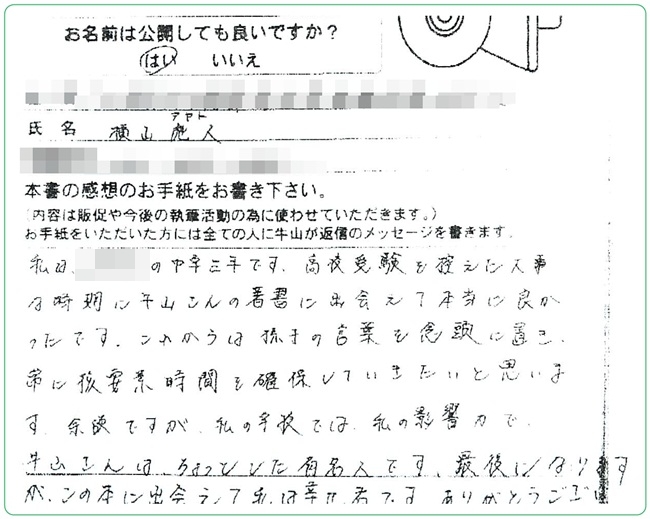 お名前は公開しても良いですか？
はい　いいえ
アヤト
氏 名　横山 彪人
本書の感想のお手紙をお書き下さい。
（内容は販促や今後の執筆活動の為に使わせていただきます。）
お手紙をいただいた方には全ての人に牛山が返信のメッセージを書きます.
私は、の中学三年です、高校受験を控えた大事
な時期に牛山さんの著書に出会えて本当に良か
ったです、これからは孫子の言葉を念頭に置き、
常に核要素時間を確保していきたいと思いま
す、余談ですが、私の学校では、私の影響力で、
牛山さんは、ちょっとした有名人です、最後になります
が、この本に出会えて私は幸せ者です、ありがとうござい